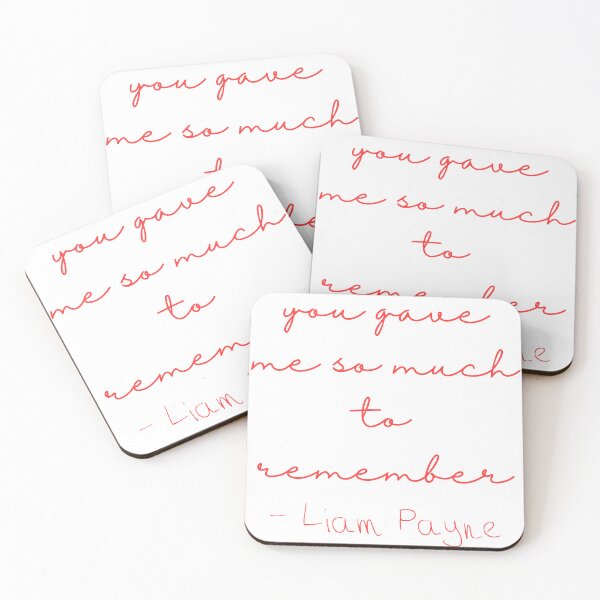 you gave
me so much
you gave
me so much
to
remember
you gave
me so much
to
- Liam
you gave
me so much
to
remember
- Liam Payne